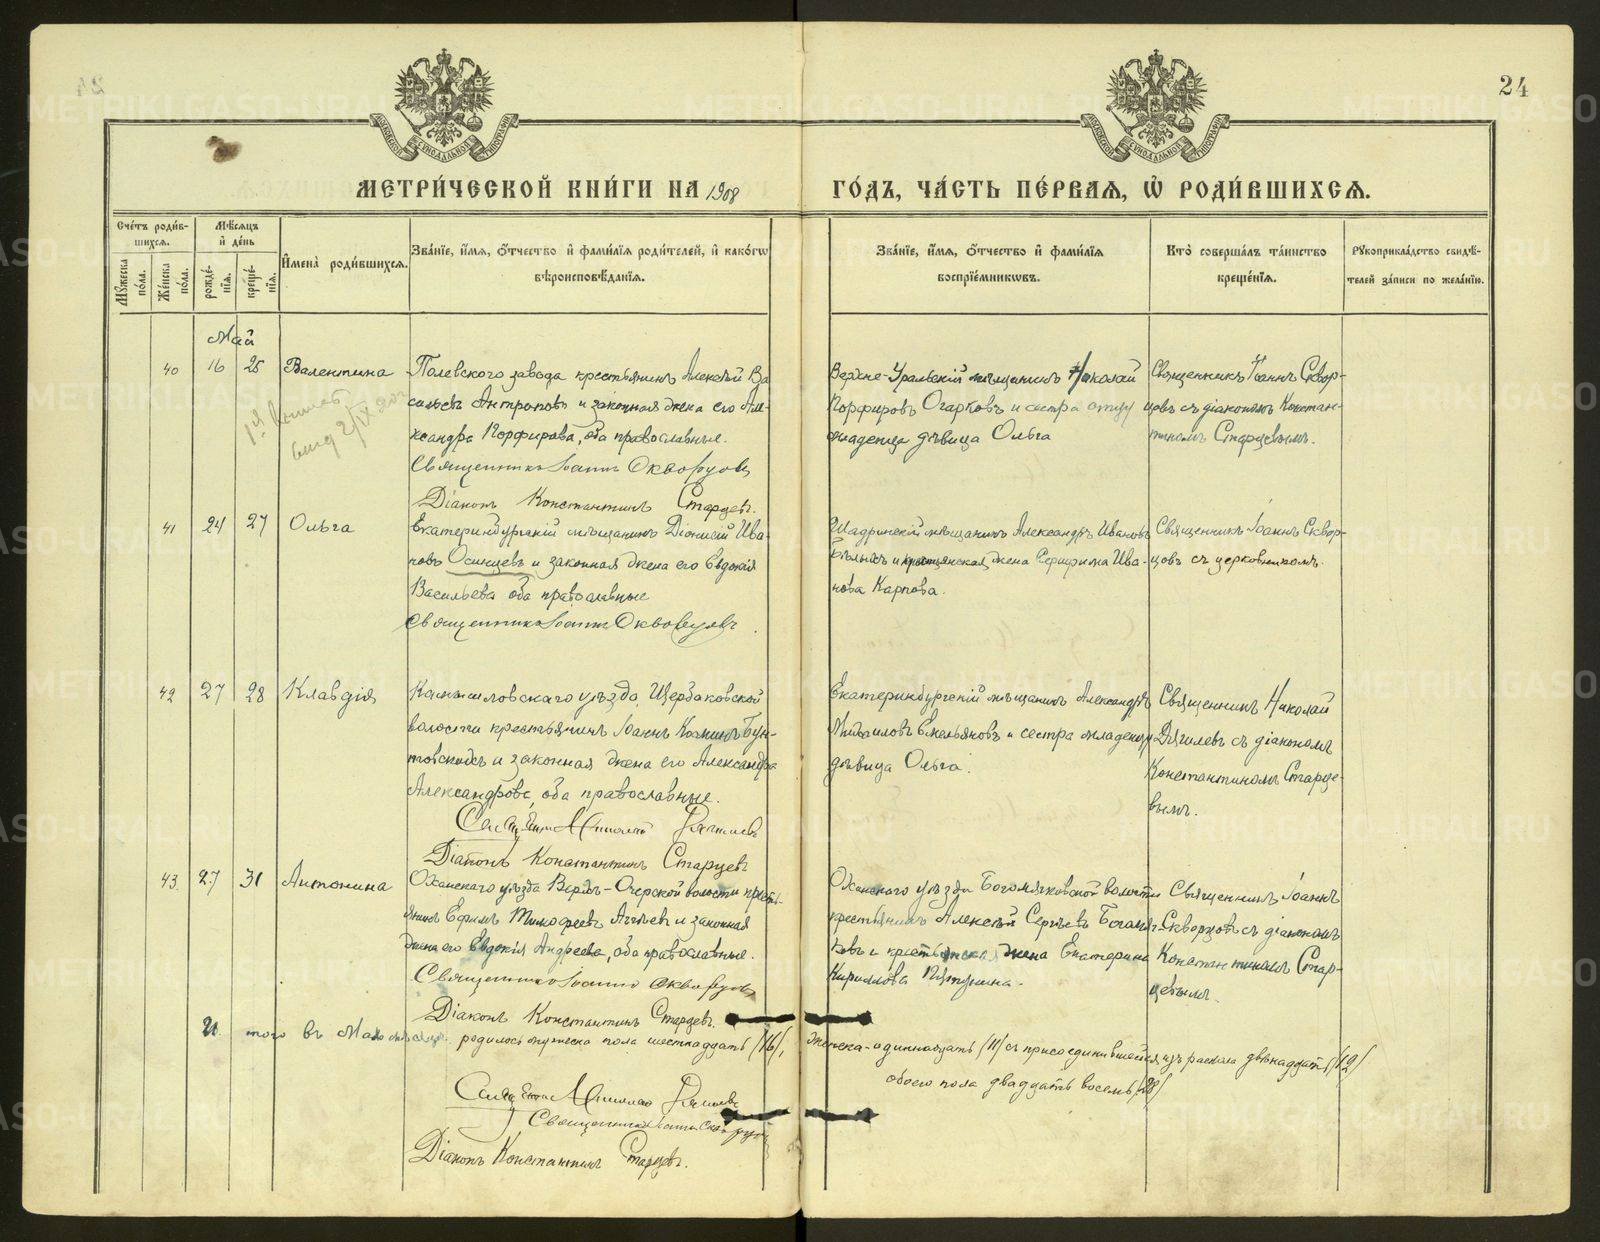 24
МЕТРИ́ЧЕСКОЙ КНИ́ГИ НА 1908 ГО́ДЪ, ЧА́СТЬ ПЕ́РВАЯ, Ѽ РОДИ́ВШИХСЯ.
Сче́тъ роди́в-
шихся.
Мѣ́сяцъ
и҆ де́нь
Мꙋ́жеска по́ла.
Же́нска по́ла.
рожде́-
нїя.
креще́-
нїя.
И҆мена̀ роди́вшихся.
Зва́нїе, и҆́мя, ѻ҆́тчество и҆ фами́лїя роди́телей, и҆ како́гѡ
вѣроисповѣ́данїя.
Зва́нїе, и҆́мя, ѻ҆́тчество и҆ фами́лїя
воспрїе́мникѡвъ.
Кто̀ соверша́лъ та́инство
креще́нїя.
Рꙋкоприкла́дство свидѣ́-
телей за́писи по жела́нїю.
Май
40 16 25 Валентина
Полевского завода крестьянинъ Алексѣй Ва-
сильевъ Антроповъ и законная жена его Але-
ксандра Порфирова, оба православные.
Священникъ Іоаннъ Скворцовъ
Діаконъ Константинъ Старцевъ.
Верхне-Уральскій мѣщанинъ Николай
Порфировъ Огарковъ и сестра отцу
младенца дѣвица Ольга
Священникъ Іоаннъ Сквор-
цовъ съ діакономъ Констан-
тиномъ Старцевымъ.
41 24 27 Ольга
Екатеринбургскій мѣщанинъ Діонисій Ива-
новъ Осинцевъ и законная жена его Евдокія
Васильева оба православные
Священникъ Іоаннъ Скворцовъ.
Шадринскій мѣщанинъ Александръ Ивановъ
и крестьянская жена Серафима Ива-
нова Карпова.
Священникъ Іоаннъ Сквор-
цовъ съ церковникомъ.
42 27 28 Клавдія
Камышловскаго уѣзда, Щербаковской
волости крестьянинъ Іоаннъ Козминъ Бун-
товскихъ и законная жена его Александра
Александрова, оба православные.
Священникъ Николай Дягилевъ
Діаконъ Константинъ Старцевъ
Екатеринбургскій мѣщанинъ Александръ
Михаиловъ Емельяновъ и сестра младенцу
дѣвица Ольга.
Священникъ Николай
Дягилевъ съ діакономъ
Константиномъ Старце-
вымъ.
43 27 31 Антонина
Оханскаго уѣзда Верхъ-Очерской волости кресть-
янинъ Ефимъ Тимофеевъ Агѣевъ и законная
жена его Евдокія Андреева, оба православные.
Священникъ Іоаннъ Скворцовъ
Діаконъ Константинъ Старцевъ.
Оханского уѣзда Богомягковской волости
крестьянинъ Алексѣй Сергѣевъ Богомяг-
ковъ и крестьянская жена Екатерина
Кириллова Пятунина.
Священникъ Іоаннъ
Скворцовъ съ діакономъ
Константиномъ Стар-
цевымъ.
И того въ Маѣ мѣсяцѣ родилось мужеска пола шестнадцать /16/, женска - одиннадцать /11/ съ присоединившейся изъ раскола двѣнадцать /12/
обоего пола двадцать восемь /28/
Священникъ Николай Дягилевъ
Священникъ Іоаннъ Скворцовъ
Діаконъ Константинъ Старцевъ.
METRIKI.GASO-URAL.RU